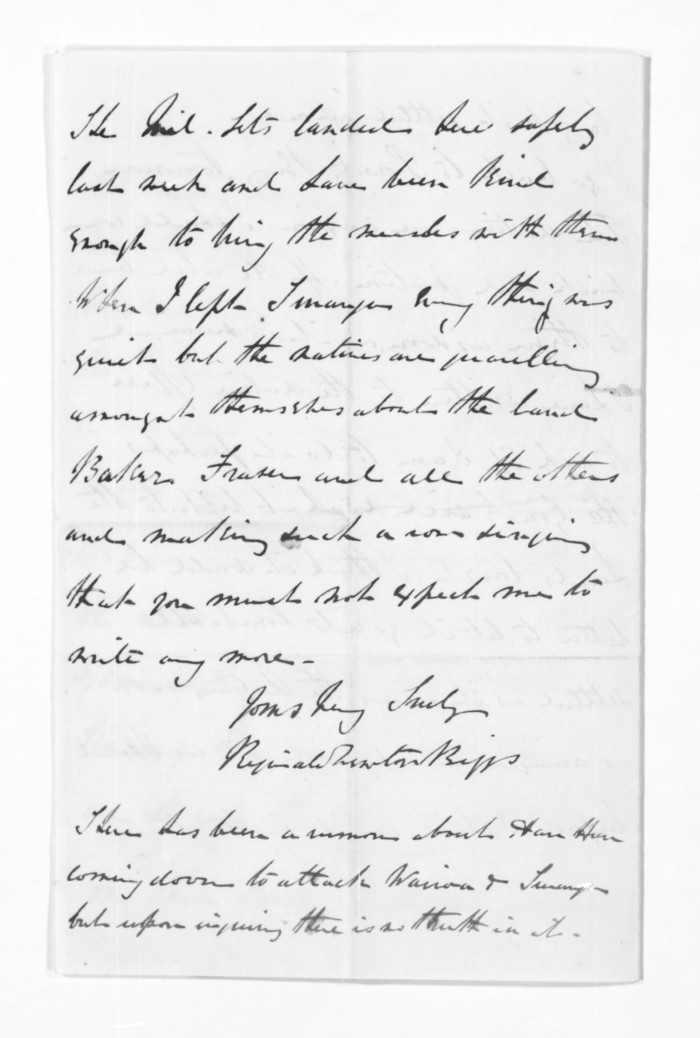 The Mil. Sets landed here safely
last week and have been kind
enough to bring the measles with them
When I left Turanga every thing was
quiet but the natives are quarrelling
amongst themselves about the land
Baker Fraser and all the others
and making such a row singing
that you must not expect me to
write any more -
Yours very Truly
Reginald Newton Biggs
There has been a rumour about Hau Hau
coming down to attack Wairoa & Turanga
but upon inquiring there is no truth in it -